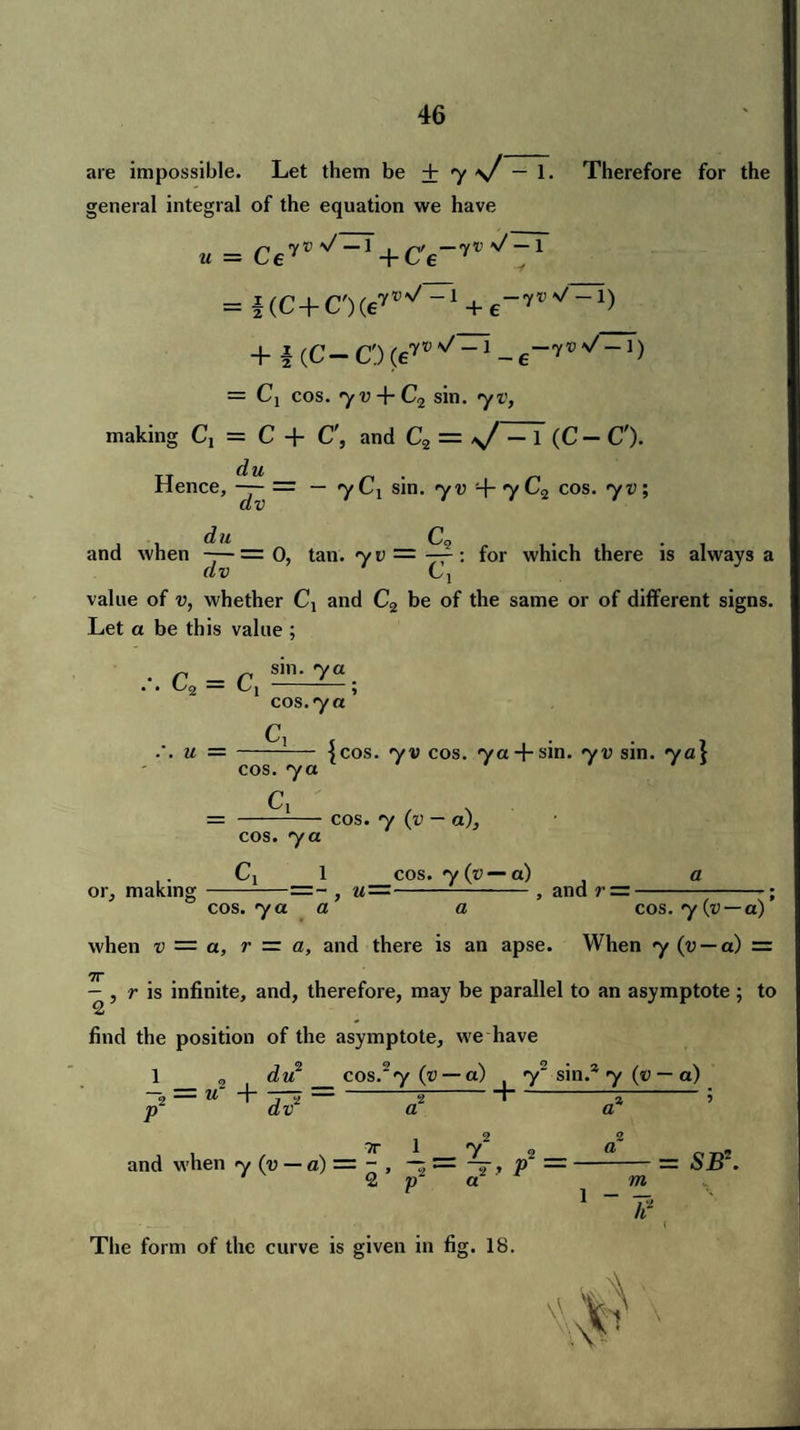 46
are impossible. Let them be ± γ √−1. Therefore for the
general integral of the equation we have
u = Cϵ^{γv√−1} + C′ϵ^{−γv√−1}
= ½(C+C′)(ϵ^{γv√−1} + ϵ^{−γv√−1})
+ ½(C−C′)(ϵ^{γv√−1} − ϵ^{−γv√−1})
= C₁ cos. γv + C₂ sin. γv,
making C₁ = C + C′, and C₂ = √−1 (C − C′).
Hence, du/dv = − γC₁ sin. γv + γC₂ cos. γv;
and when du/dv = 0, tan. γv = C₂/C₁ : for which there is always a
value of v, whether C₁ and C₂ be of the same or of different signs.
Let α be this value ;
∴ C₂ = C₁ sin. γα / cos. γα ;
∴ u = C₁ / cos. γα {cos. γv cos. γα + sin. γv sin. γα}
= C₁ / cos. γα cos. γ (v − α),
or, making C₁ / cos. γα = 1/a , u = cos. γ(v − α) / a , and r = a / cos. γ(v − α) ;
when v = α, r = a, and there is an apse. When γ (v − α) =
π/2 , r is infinite, and, therefore, may be parallel to an asymptote ; to
find the position of the asymptote, we have
1/p² = u² + du²/dv² = cos.²γ (v − α) / a² + γ² sin.² γ (v − α) / a² ;
and when γ (v − α) = π/2 , 1/p² = γ²/a² , p² = a² / (1 − m/h²) = SB².
The form of the curve is given in fig. 18.